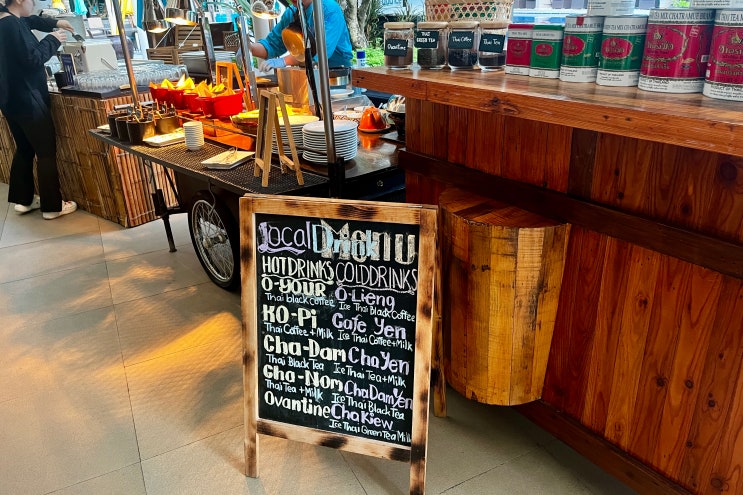 Ovantine
Thai
GREEN TEA
COFFEE
THAI TEA
Local Drink Menu
HOT DRINKS COLD DRINKS
O-YOUR O-Lieng
Thai black coffee Ice Thai Black Coffee
KO-Pi Cafe Yen
Thai Coffee + Milk Ice Thai Coffee + Milk
Cha-Dam Cha Yen
Thai Black Tea Ice Thai Tea + Milk
Cha-Nom Cha Dam Yen
Thai Tea + Milk Ice Thai Black Tea
Ovantine Cha Kiew
Ice Thai Green Tea Milk